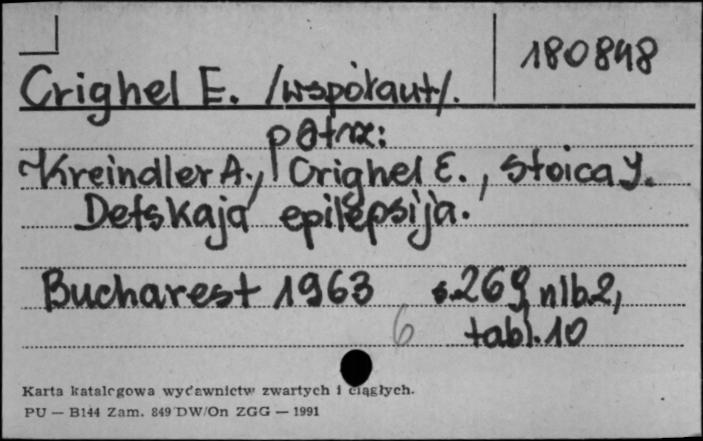 180848
Crighel E. /współaut/.
patrz:
Kreindler A., Crighel E., Stoica I.
Detskaja epilepsija.
Bucharest 1963 s.269, nlb.2,
6 tabl.10
Karta katalogowa wydawnictw zwartych i ciągłych.
PU — B144 Zam. 849 DW/On ZGG — 1991